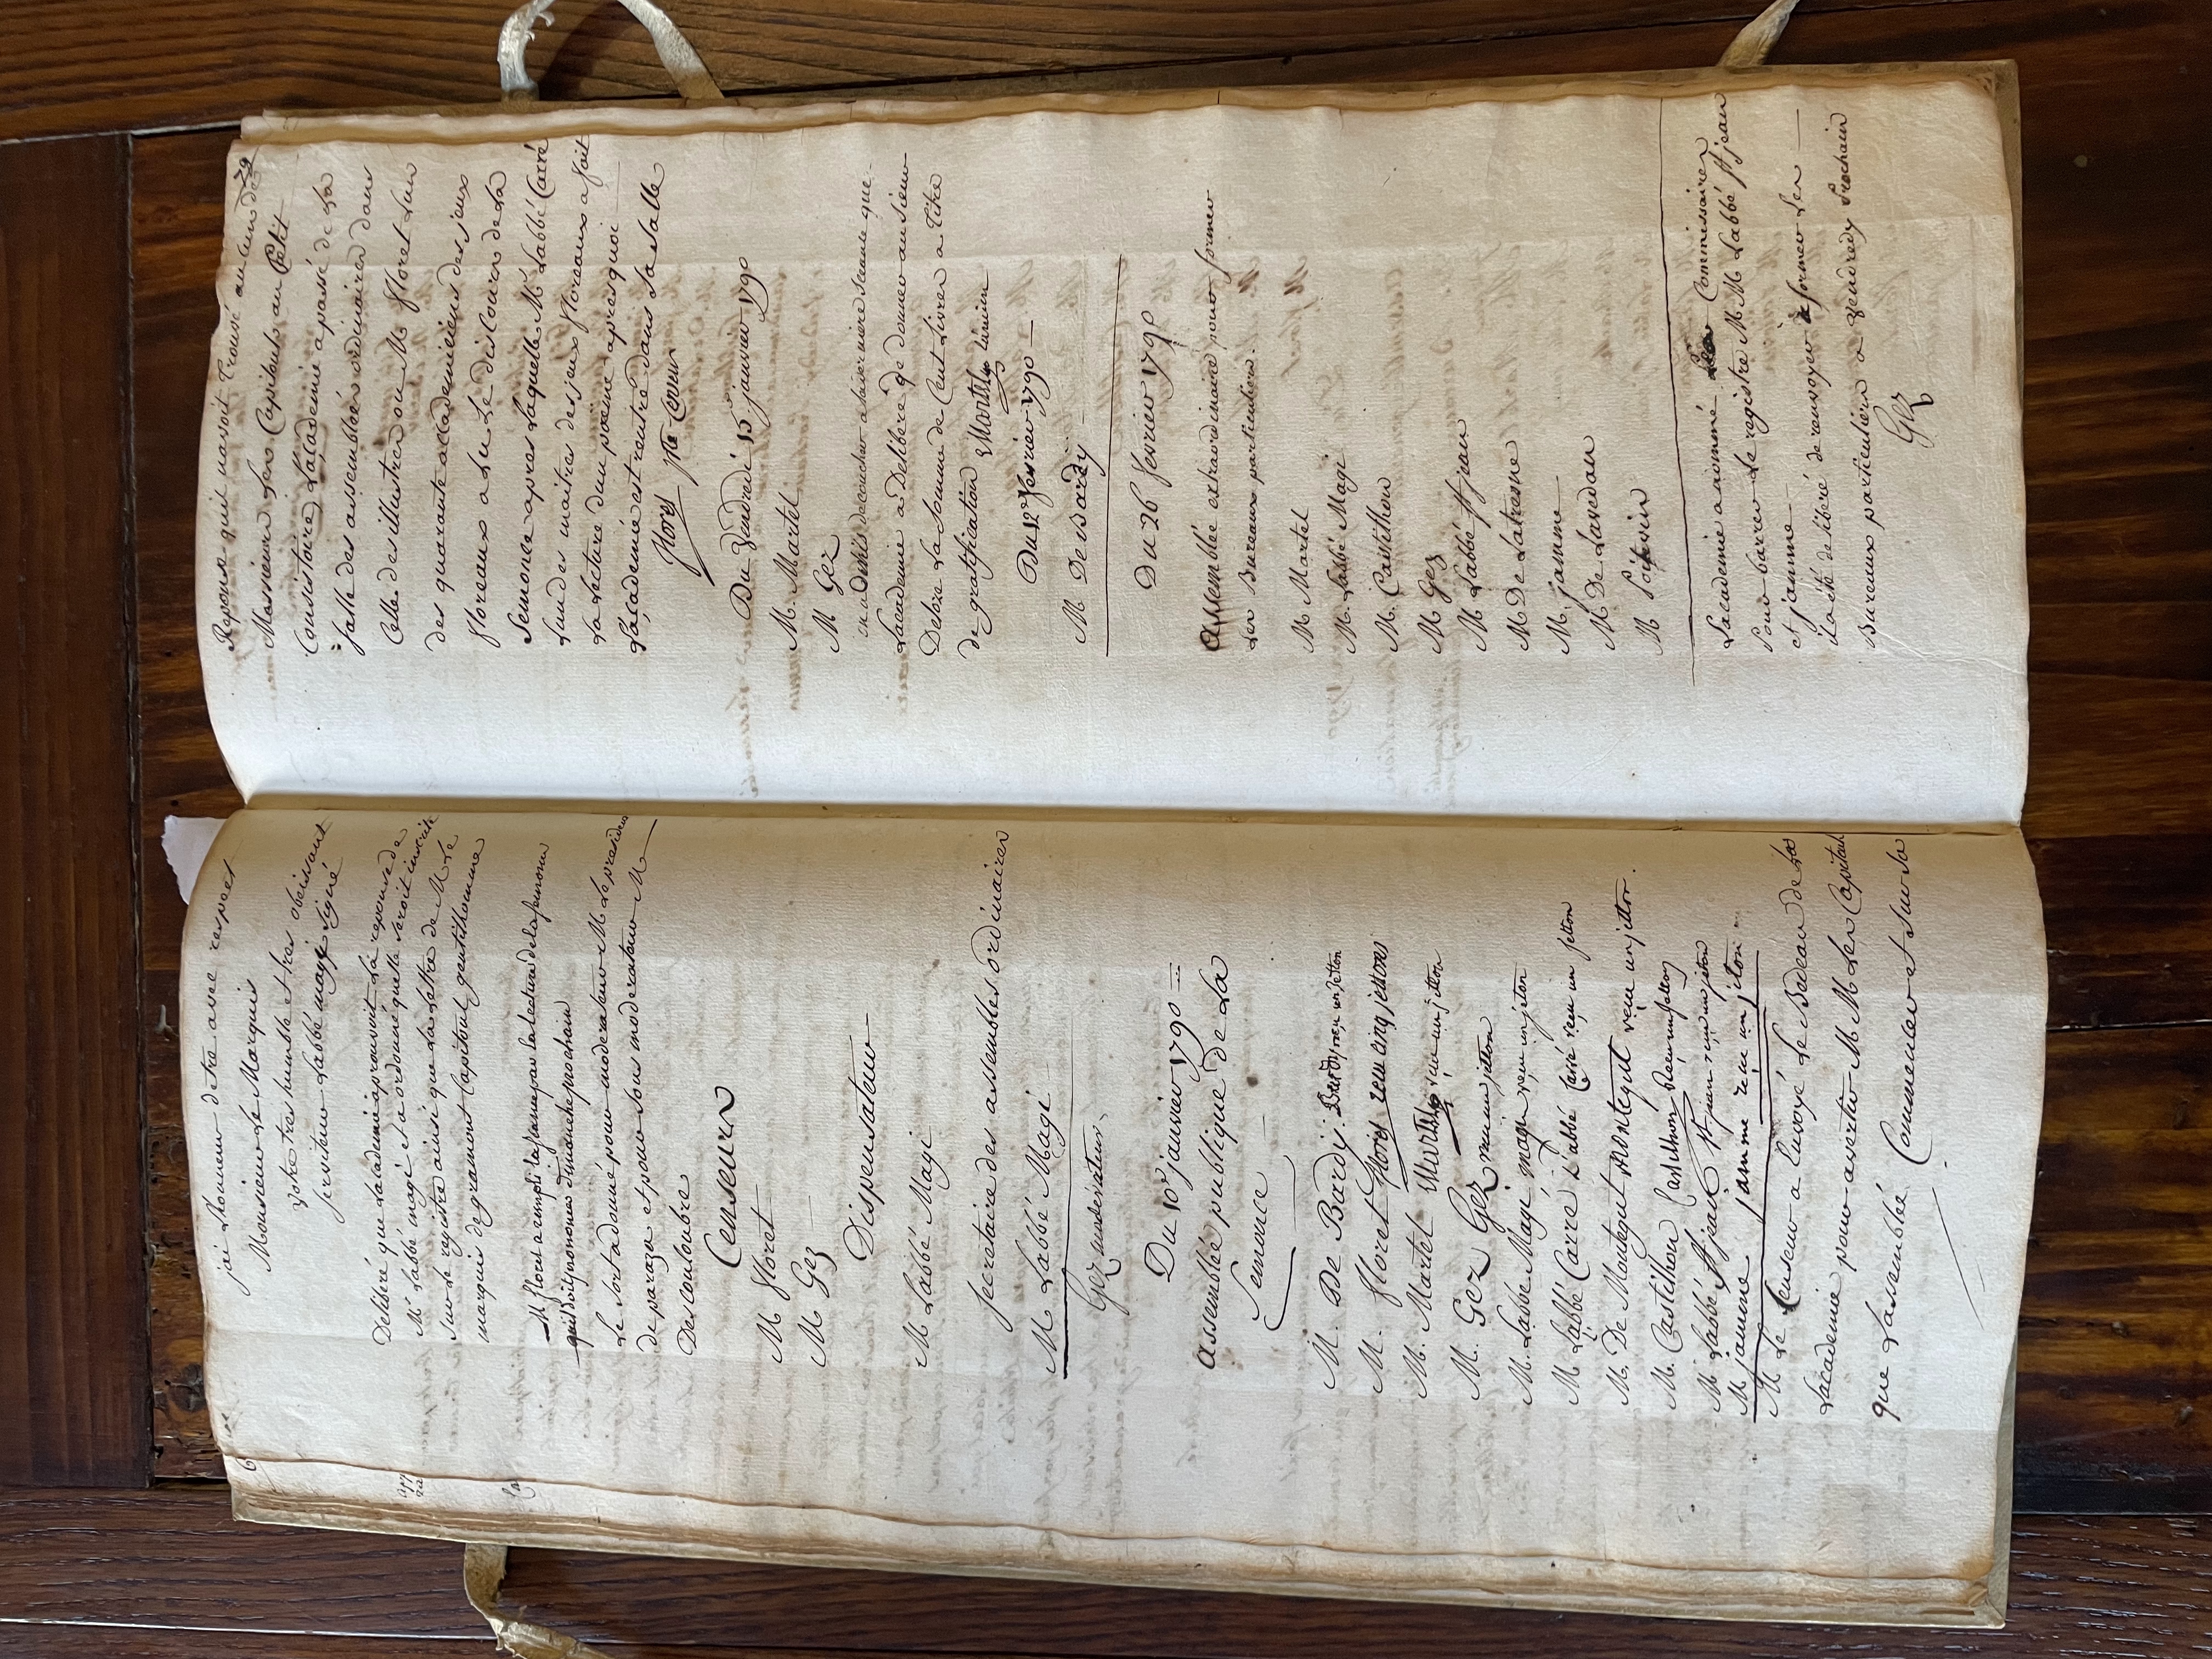 j'ai Lhonneur detre avec respet
Monsieur Le Marquis
Votre tres humble et tres obeissant
serviteur Labbé magi signé
Deliberé que Lacademie aprouvoit La reponse de
Mr Labbé magi et a ordonné quelle seroit inscrite
sur Le registre ainsi que La Lettre de M Le
marquis de gramont Capitoul gentilhomme
M floret a rempli la seance par la lecture de la semonce
quil doit prononcer dimanche prochain
Le sort a donné pour moderateur M Le president
de paraza et pour sous moderateur M
Descouloubre
Censeurs
M floret
M Gez
Dispensateur
M Labbé Magi
secretaire des assemblées ordinaires
M Labbé Magi
Gez
Du 10e janvier 1790
assemblée publique de La
Semonce
M. De Bardy. Bardy reçu un jetton
M. floret floret reçu cinq jettons
M. Martel Martel reçu un jetton
M. Gez Gez reçu un jetton
M. Labbé Magi magi reçu un jeton
M Labbé Carré L'abbé Carré reçu un jetton
M. De Montegut Montegut reçu un jetton.
M. Castilhon Castilhon reçu un jetton
M Labbé St jean St jean reçu un jeton
M jamme jamme reçu un jeton
M Le Censeur a Envoyé Le Bedeau de
Lacademie pour avertir M M Les Capitouls
que Lassemblée Commence et sur La
79
Reponse quil navoit trouvé aucun de
Messieurs Les Capitouls au Petit
Consistoire, Lacademie a passé de La
salle des assemblées ordinaires dans
Celle des illustres ou M floret Lun
des quarante accademiciens des jeux
floreaux a Lu Le discours de La
Semonce apres Laquelle M Labbé Carré
Lun des maitres des jeux floreaux a fait
La Lecture dun poëme apres quoi
Lacademie est rentrée dans Sa salle
floret Censeur
Du Vendredi 15 janvier 1790
M. Martel
M Gez
Lacademie a Deliberé de donner au Sieur
Delrie La somme de Cent Livres a Titre
de gratification Martel
Du 12 fevrier 1790
M De Bardy
Du 26 fevrier 1790
assemblée extraordinaire pour former
Les Bureaux particuliers.
M Martel
M. Labbé Magi
M. Castilhon
M Gez
M Labbé St jean
M De Latresne
M. jamme
M De Lavedan
M Poitevin
Lacademie a nommé Commissaires
Pour barrer Le registre M M Labbé St jean
et jamme
il a été deliberé de renvoyer a former Les
Bureaux particuliers a Vendredy Prochain
Gez